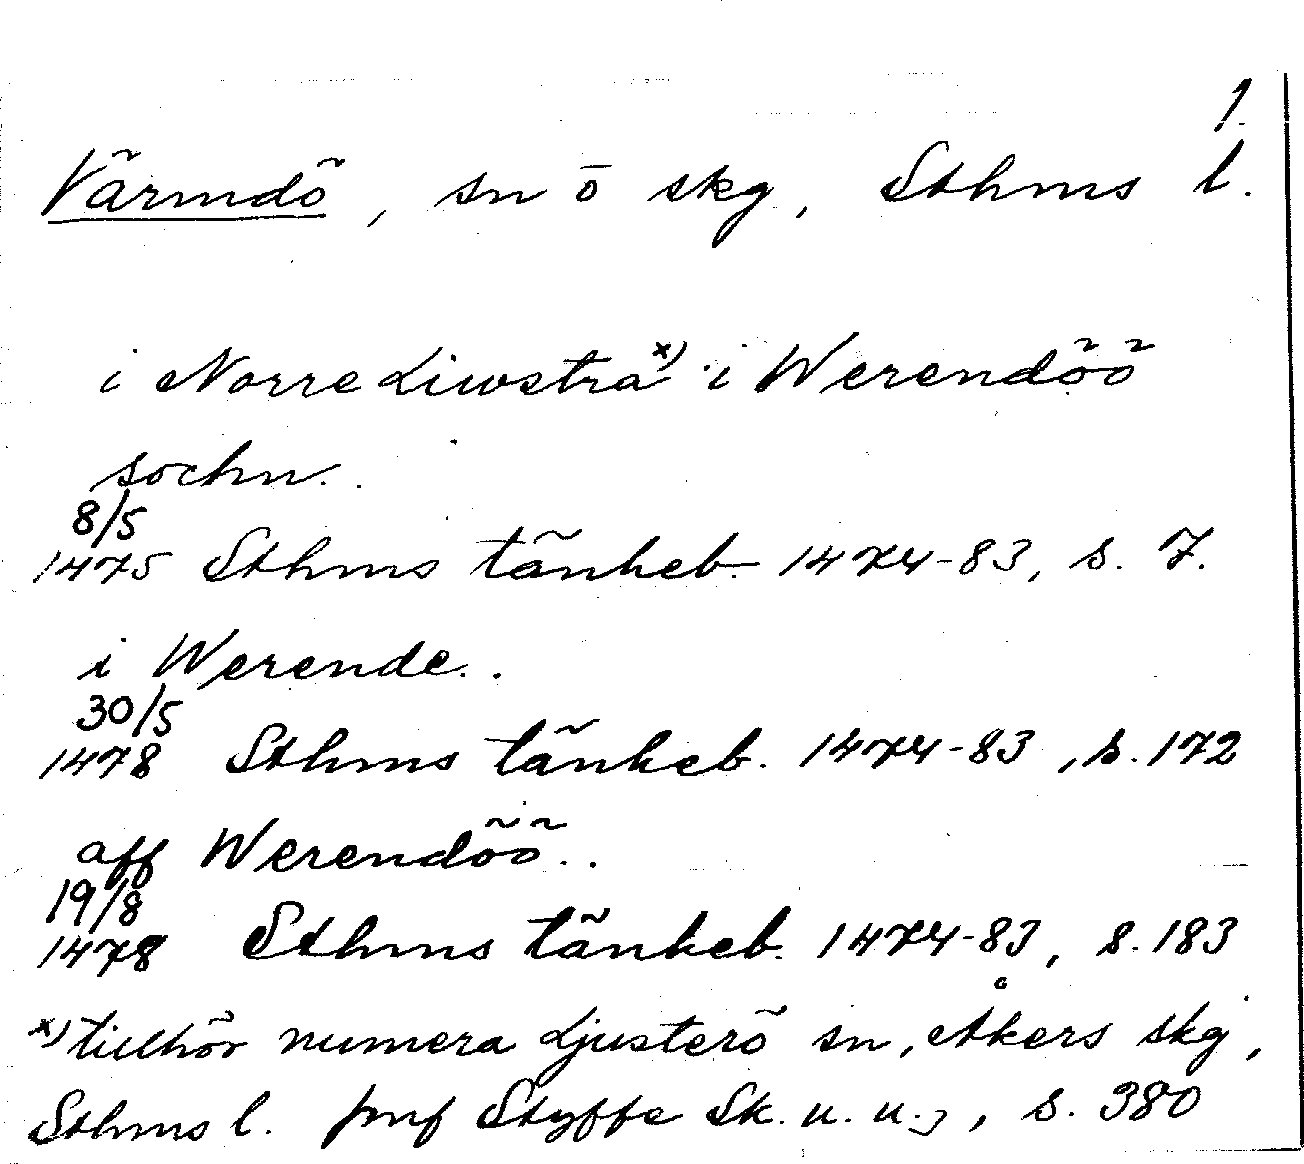 1.
Värmdö, sn ö skg, Sthms l.
i Norre Liwstra x) i Werendöö
sochn..
8/5
1475 Sthms tänkeb. 1474-83, s. 7.
i Werende..
30/5
1478 Sthms tänkeb. 1474-83, s. 172
aff Werendöö..
19/8
1478 Sthms tänkeb. 1474-83, s. 183
x) tillhör numera Ljusterö sn, Åkers skg,
Sthms l. jmf Styffe Sk. u. u., s. 380